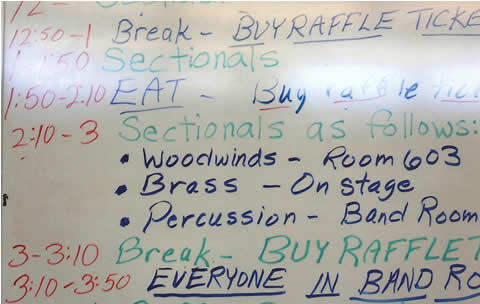 12-
12:50-1 Break - BUY RAFFLE TICKE
1-1:50 Sectionals
1:50-2:10 EAT - Buy raffle tic
2:10-3 Sectionals as follows:
• Woodwinds - Room 603
• Brass - On stage
• Percussion - Band Room
3-3:10 Break - BUY RAFFLE T
3:10-3:50 EVERYONE IN BAND RO